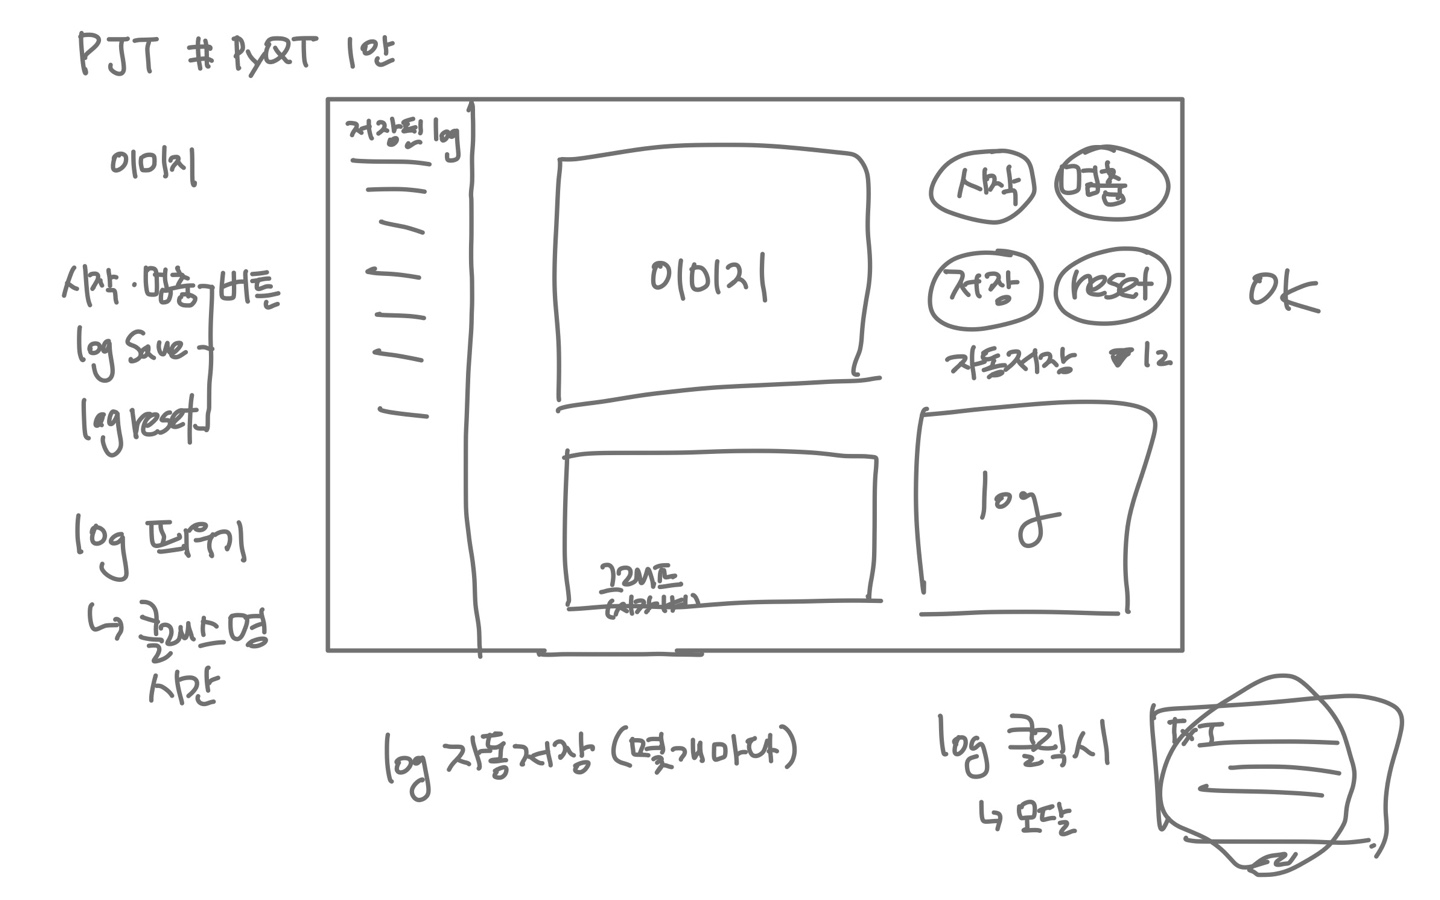 PJT # PyQT 1안
이미지
시작·멈춤 버튼
log save
log reset
log 띄우기
↳ 클래스명
시간
저장된 log
이미지
그래프
시작
멈춤
저장
reset
자동저장 ▼ 12
log
OK
log 자동저장 (몇개마다)
log 클릭시
↳ 모달
TXT